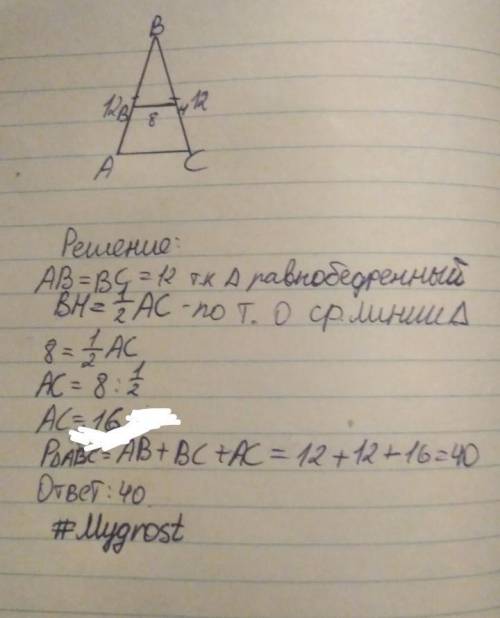 B
12 В Н 12
8
A C
Решение:
AB = BC = 12 т.к Δ равнобедренный
BH = 1/2 AC - по т. О ср. линии Δ
8 = 1/2 AC
AC = 8 : 1/2
AC = 16
PΔABC = AB + BC + AC = 12 + 12 + 16 = 40
Ответ: 40
#Mygrost